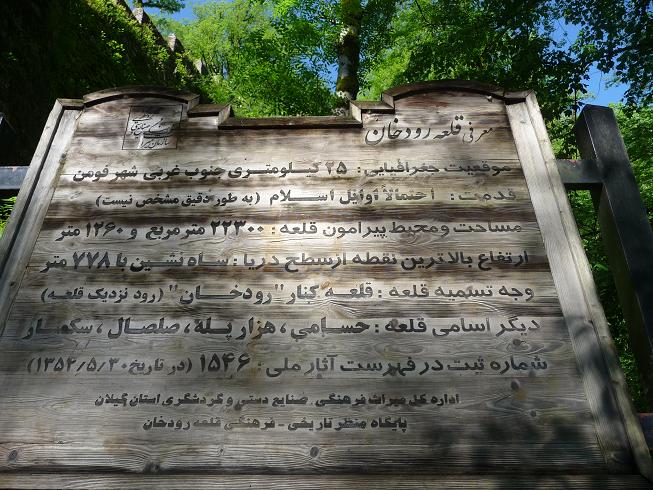 معرفی قلعه رودخان
موقعیت جغرافیایی: ۲۵ کیلومتری جنوب غربی شهر فومن
قدمت: احتمالاً اوایل اسلام (به طور دقیق مشخص نیست)
مساحت و محیط پیرامون قلعه: ۲۲۳۰۰ متر مربع و ۱۲۶۰ متر
ارتفاع بالاترین نقطه از سطح دریا: شاه نشین با ۷۷۸ متر
وجه تسمیه قلعه: قلعه کنار "رودخان" (رود نزدیک قلعه)
دیگر اسامی قلعه: حسامی، هزار پله، صلصال، سکسار
شماره ثبت در فهرست آثار ملی: ۱۵۴۶ (در تاریخ ۱۳۵۴/۵/۳۰)
اداره کل میراث فرهنگی، صنایع دستی و گردشگری استان گیلان
پایگاه منظر تاریخی - فرهنگی قلعه رودخان